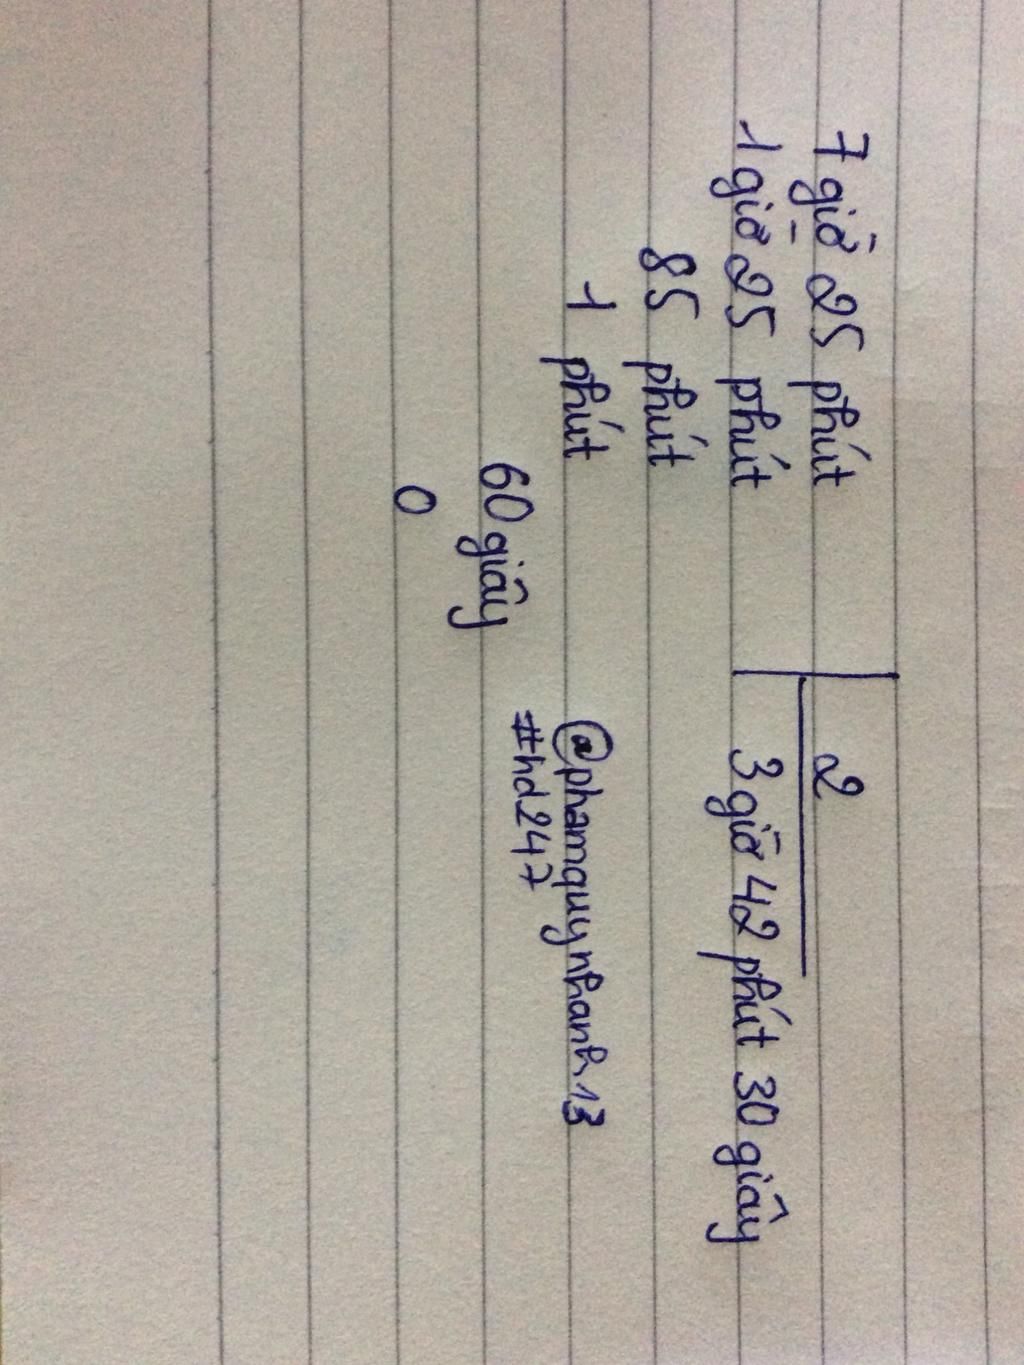 7 giờ 25 phút | 2
1 giờ 25 phút 3 giờ 42 phút 30 giây
85 phút
1 phút
@phamquynhanh13
60 giây #hd247
0